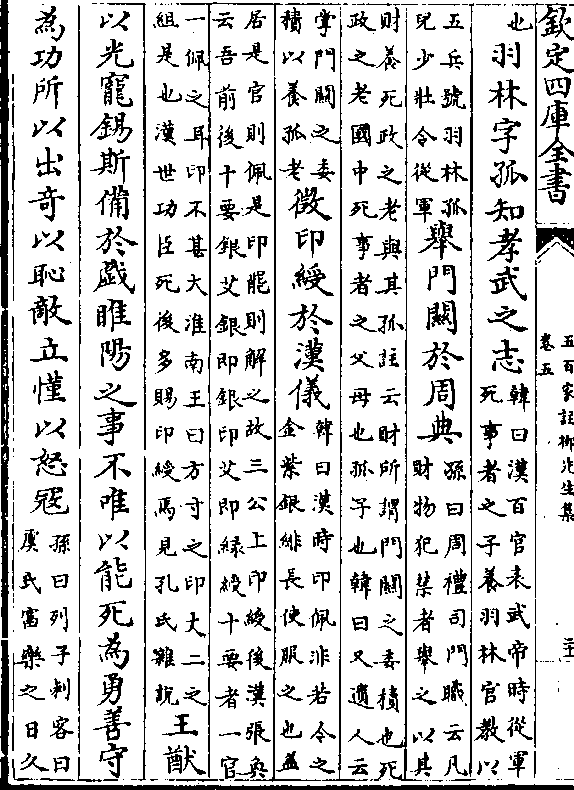 欽定四庫全書
五百家註柳先生集
卷五
也羽林字孤知孝武之志韓曰漢百官表武帝時從軍死事者之子養羽林官教以
五兵號羽林孤兒少壯令從軍舉門關於周典孫曰周禮司門職云凡財物犯禁者舉之以其
財養死政之老與其孤註云財所謂門關之委積也死政之老國中死事者之父母也孤子也韓曰又遺人云
掌門關之委積以養孤老徵印綬於漢儀韓曰漢時印佩非若今之金紫銀緋長使服之也蓋
居是官則佩是印罷則解之故三公上印綬後漢張奐云吾前後十要銀艾銀即銀印艾即緑綬十要者一官
一佩之耳印不甚大淮南王曰方寸之印丈二之組是也漢世功臣死後多賜印綬焉見孔氏雜說王猷
以光寵錫斯備於戲睢陽之事不唯以能死為勇善守
為功所以出奇以恥敵立慬以怒冦孫曰列子刺客曰虞氏富樂之日久